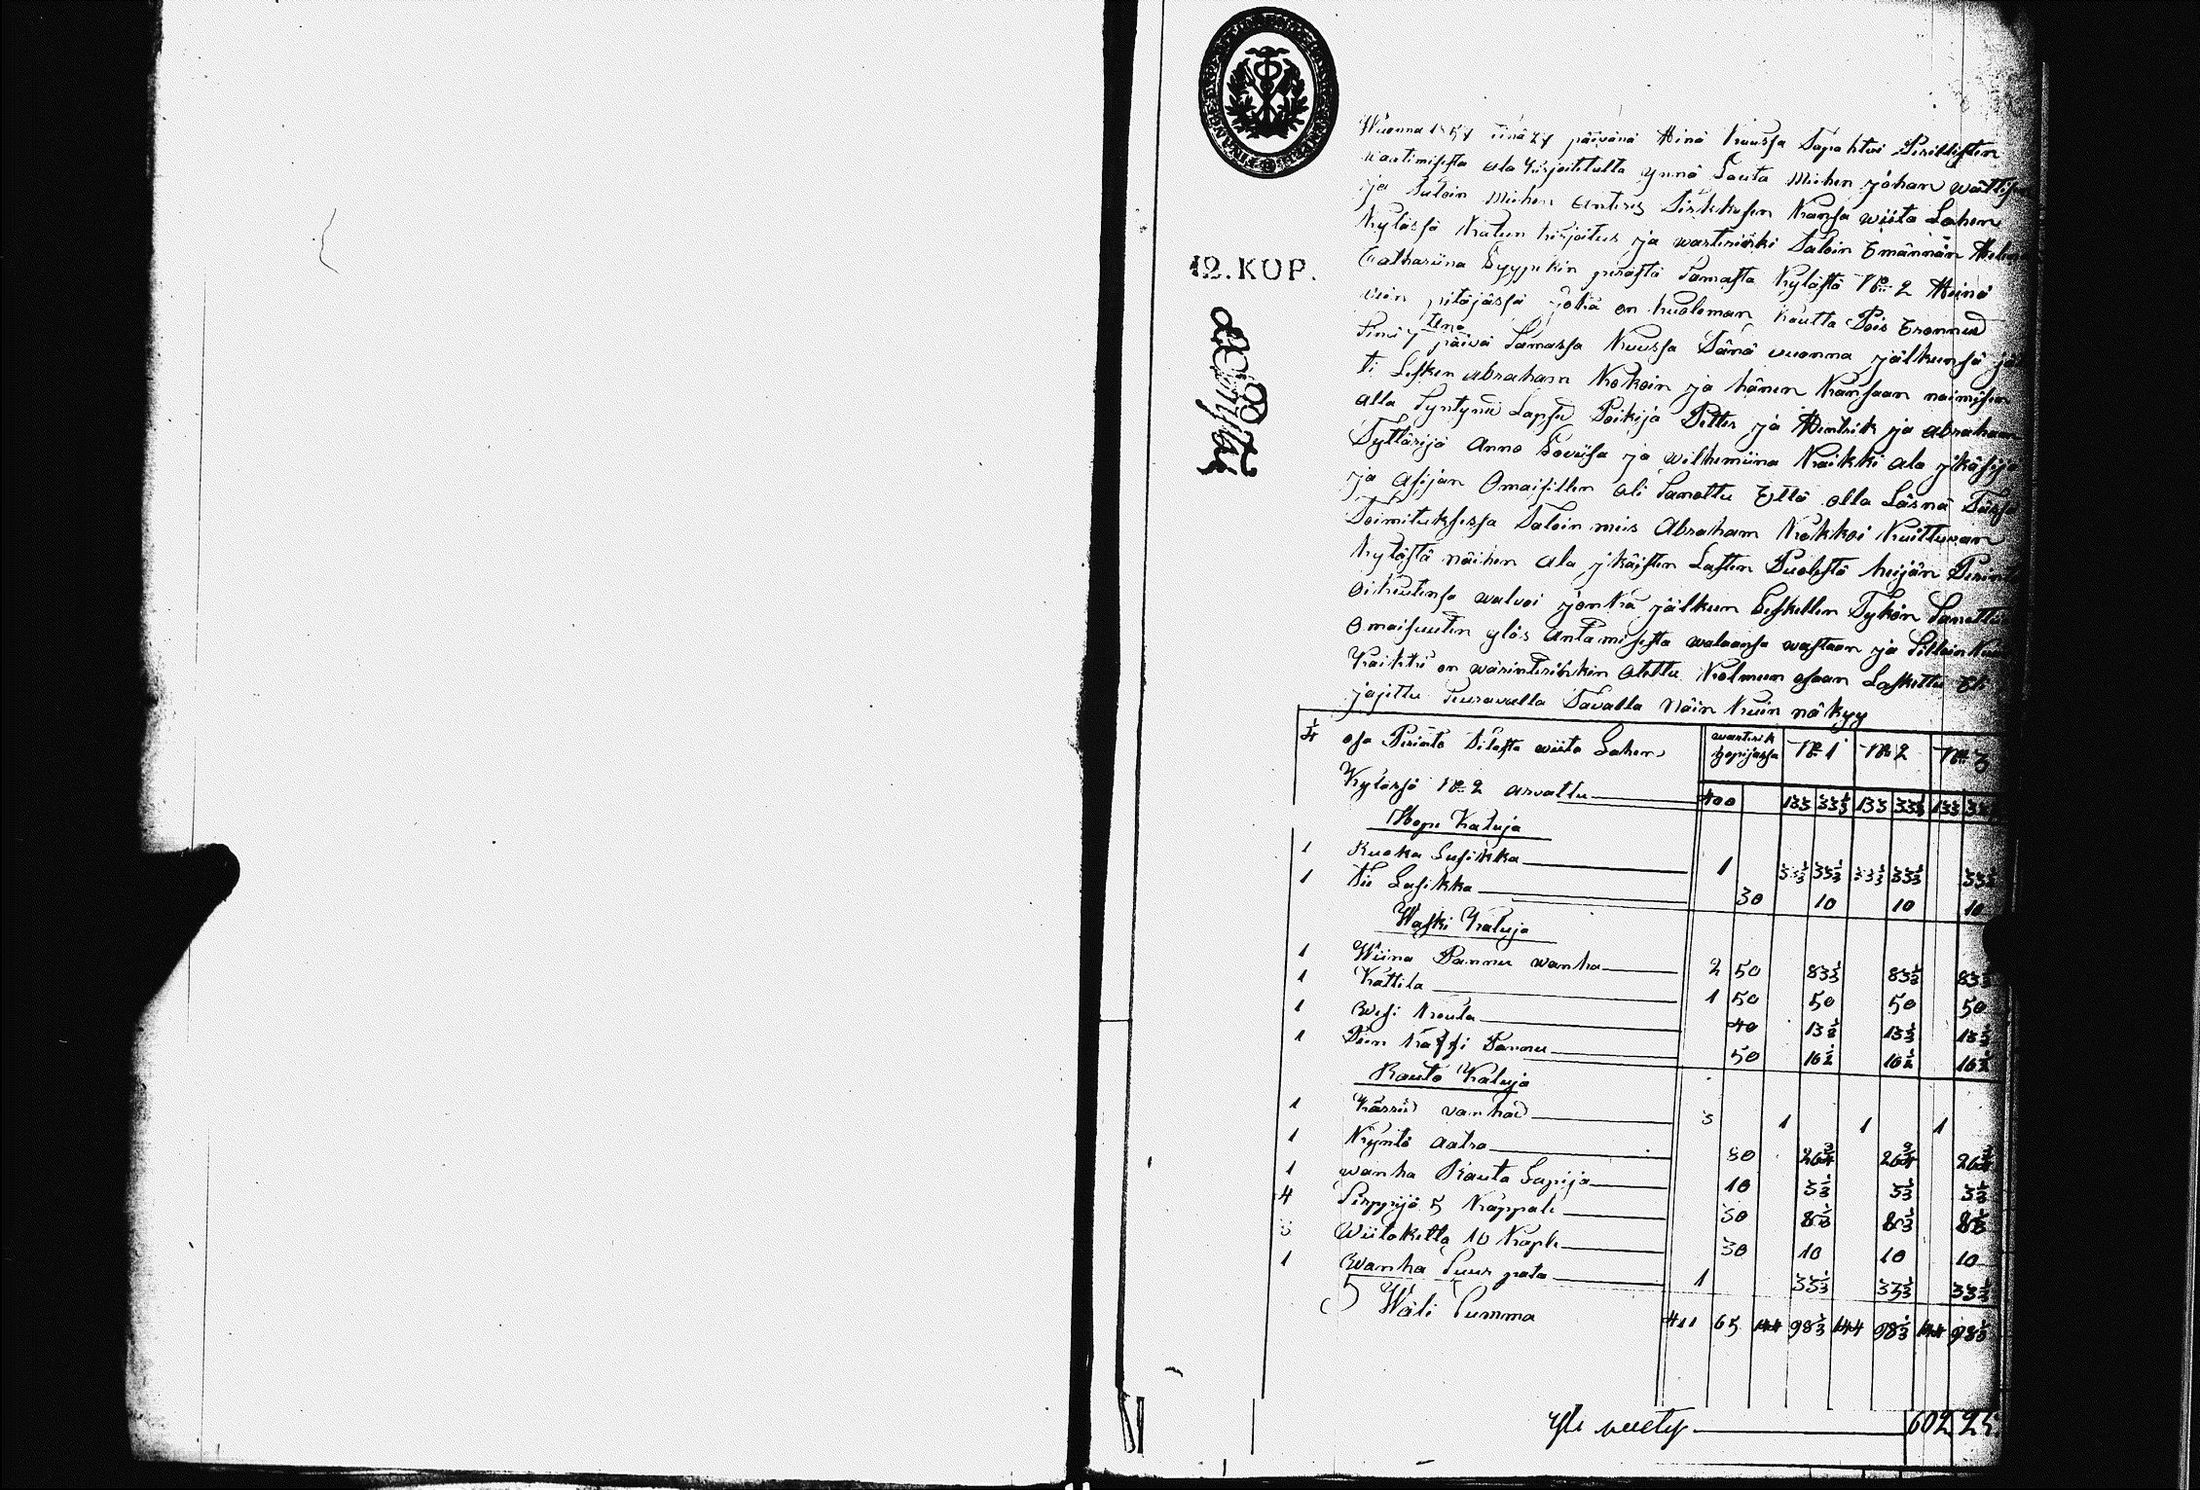 12. KOP.
Wuonna 1857 sinä 27 päivänä Heinä kuussa Tapahtui Perillisten
waatimisesta ala kirjoitetulta ynnä Lauta miehen johan wättisen
ja Taloin miehen anteres Sirkkusen Kansa wiita Lahen
Kylässä Kalun kirjoitus ja warteriärki Taloin Emännän Helena
Catharina Lyypekin perästä Samasta Kylästä No 2 Heinä
pitäjässä joka on kuoleman kautta Pois Eronnut
Sinä 7 teno päivä Samassa Kuussa Tänä vuonna jälkeensä jät
ti Lesken abraham Kokoin ja hänen Kansaan naimisen
alla Syntynü Lapset Poikija Petter ja Hentrik ja abraham
Tyttärijä Anna Loviisa ja wilhemiina Kaikki ala jkäsijä
ja asijan Omaisillen oli Sanottu Että olla Läsnä Tässä
Toimituksessa Taloin mies Abraham Kokkoi Kuittuvan
Kylästä näihen ala jkäisten Lasten Puolesta heijän Perintö
oikeutensa walvoi jonka jälkeen Leskellen Tykön Sanottu
Omaisuuten ylös antamisesta walaansa wastaan ja Silloin Kuin
Kaikki on wärinterihkin otettu Kolmeen osaan Laskettu Eli
jajettu Seuravalla Tavalla Näin Kuin näkyy
1/4 osa Perintö Tilasta wiita Lahen wartirik hopijassa No 1 No 2 No 3
Kylässä No 2 arvattu 400 133 33 1/3 133 33 1/3 133 33
Hope Kaluja
1 Ruoka Lusikka 1 33 1/3 33 1/3 33 1/3 33 1/3 33 1/3
1 Tii Lusikka 30 10 10 10
Waski Kaluja
1 Wiina Pannu wanha 2 50 83 1/3 83 1/3 83 1/3
1 Kattila 1 50 50 50 50
1 wesi Kouta 40 13 1/3 13 1/3 13 1/3
1 Pien Kaffi Pannu 50 16 1/2 16 1/2 16 1/2
Rauta Kaluja
1 Kärrüt vanhat 3 1 1 1
1 Kyntö aatra 80 26 3/4 26 3/4 26 3/4
1 wanha Rauta Lapija 10 3 1/3 3 1/3 3 1/3
4 Sirppijä 5 Kappale 30 8 1/3 8 1/3 8 1/3
3 Wiitaketta 10 Kaple 30 10 10 10
1 Wanha Suur pata 1 33 1/3 33 1/3 33 1/3
Wäli Summa 411 65 144 98 1/3 144 98 1/3 144 98 1/3
Yli veety 602 25